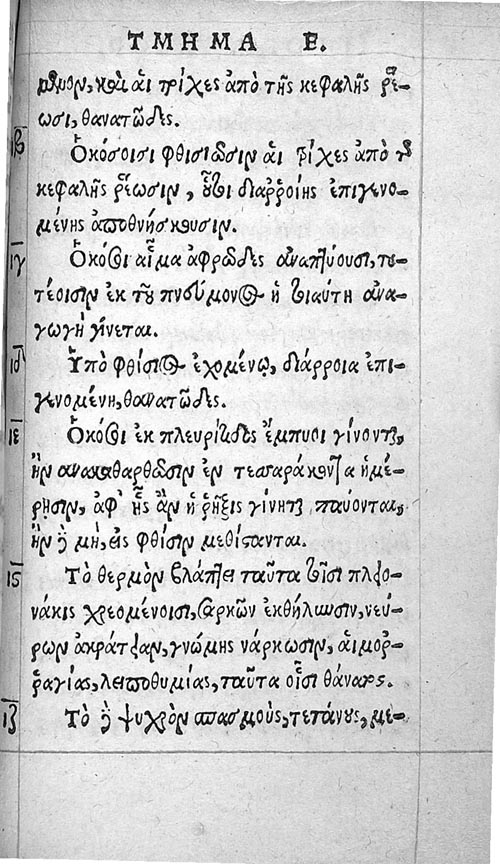 ΤΜΗΜΑ Ε.
μῶμον, καὶ αἱ τρίχες ἀπὸ τῆς κεφαλῆς ῥέ-
ωσι, θανατῶδες.
ιβ Ὁκόσοισι φθισιῶσιν αἱ τρίχες ἀπὸ τῆς
κεφαλῆς ῥέωσιν, οὗτοι διαῤῥοίης ἐπιγενο-
μένης ἀποθνήσκουσιν.
ιγ Ὁκόσοι αἷμα ἀφρῶδες ἀναπτύουσι, του-
τέοισιν ἐκ τοῦ πνεύμονος ἡ τοιαύτη ἀνα-
γωγὴ γίνεται.
ιδ Ὑπὸ φθίσιος ἐχομένῳ, διάρροια ἐπι-
γενομένη, θανατῶδες.
ιε Ὁκόσοι ἐκ πλευρίτιδος ἔμπυοι γίνονται,
ἢν ἀνακαθαρθῶσιν ἐν τεσσαράκοντα ἡμέ-
ρῃσιν, ἀφ' ἧς ἂν ἡ ῥῆξις γένηται παύονται,
ἢν δὲ μὴ, εἰς φθίσιν μεθίστανται.
ις Τὸ θερμὸν βλάπτει ταῦτα τοῖσι πλεο-
νάκις χρεομένοισι, σαρκῶν ἐκθήλυνσιν, νεύ-
ρων ἀκράτειαν, γνώμης νάρκωσιν, αἱμοῤ-
ῥαγίας, λειποθυμίας, ταῦτα οἷσι θάνατος.
ιζ Τὸ δὲ ψυχρὸν σπασμοὺς, τετάνους, με-